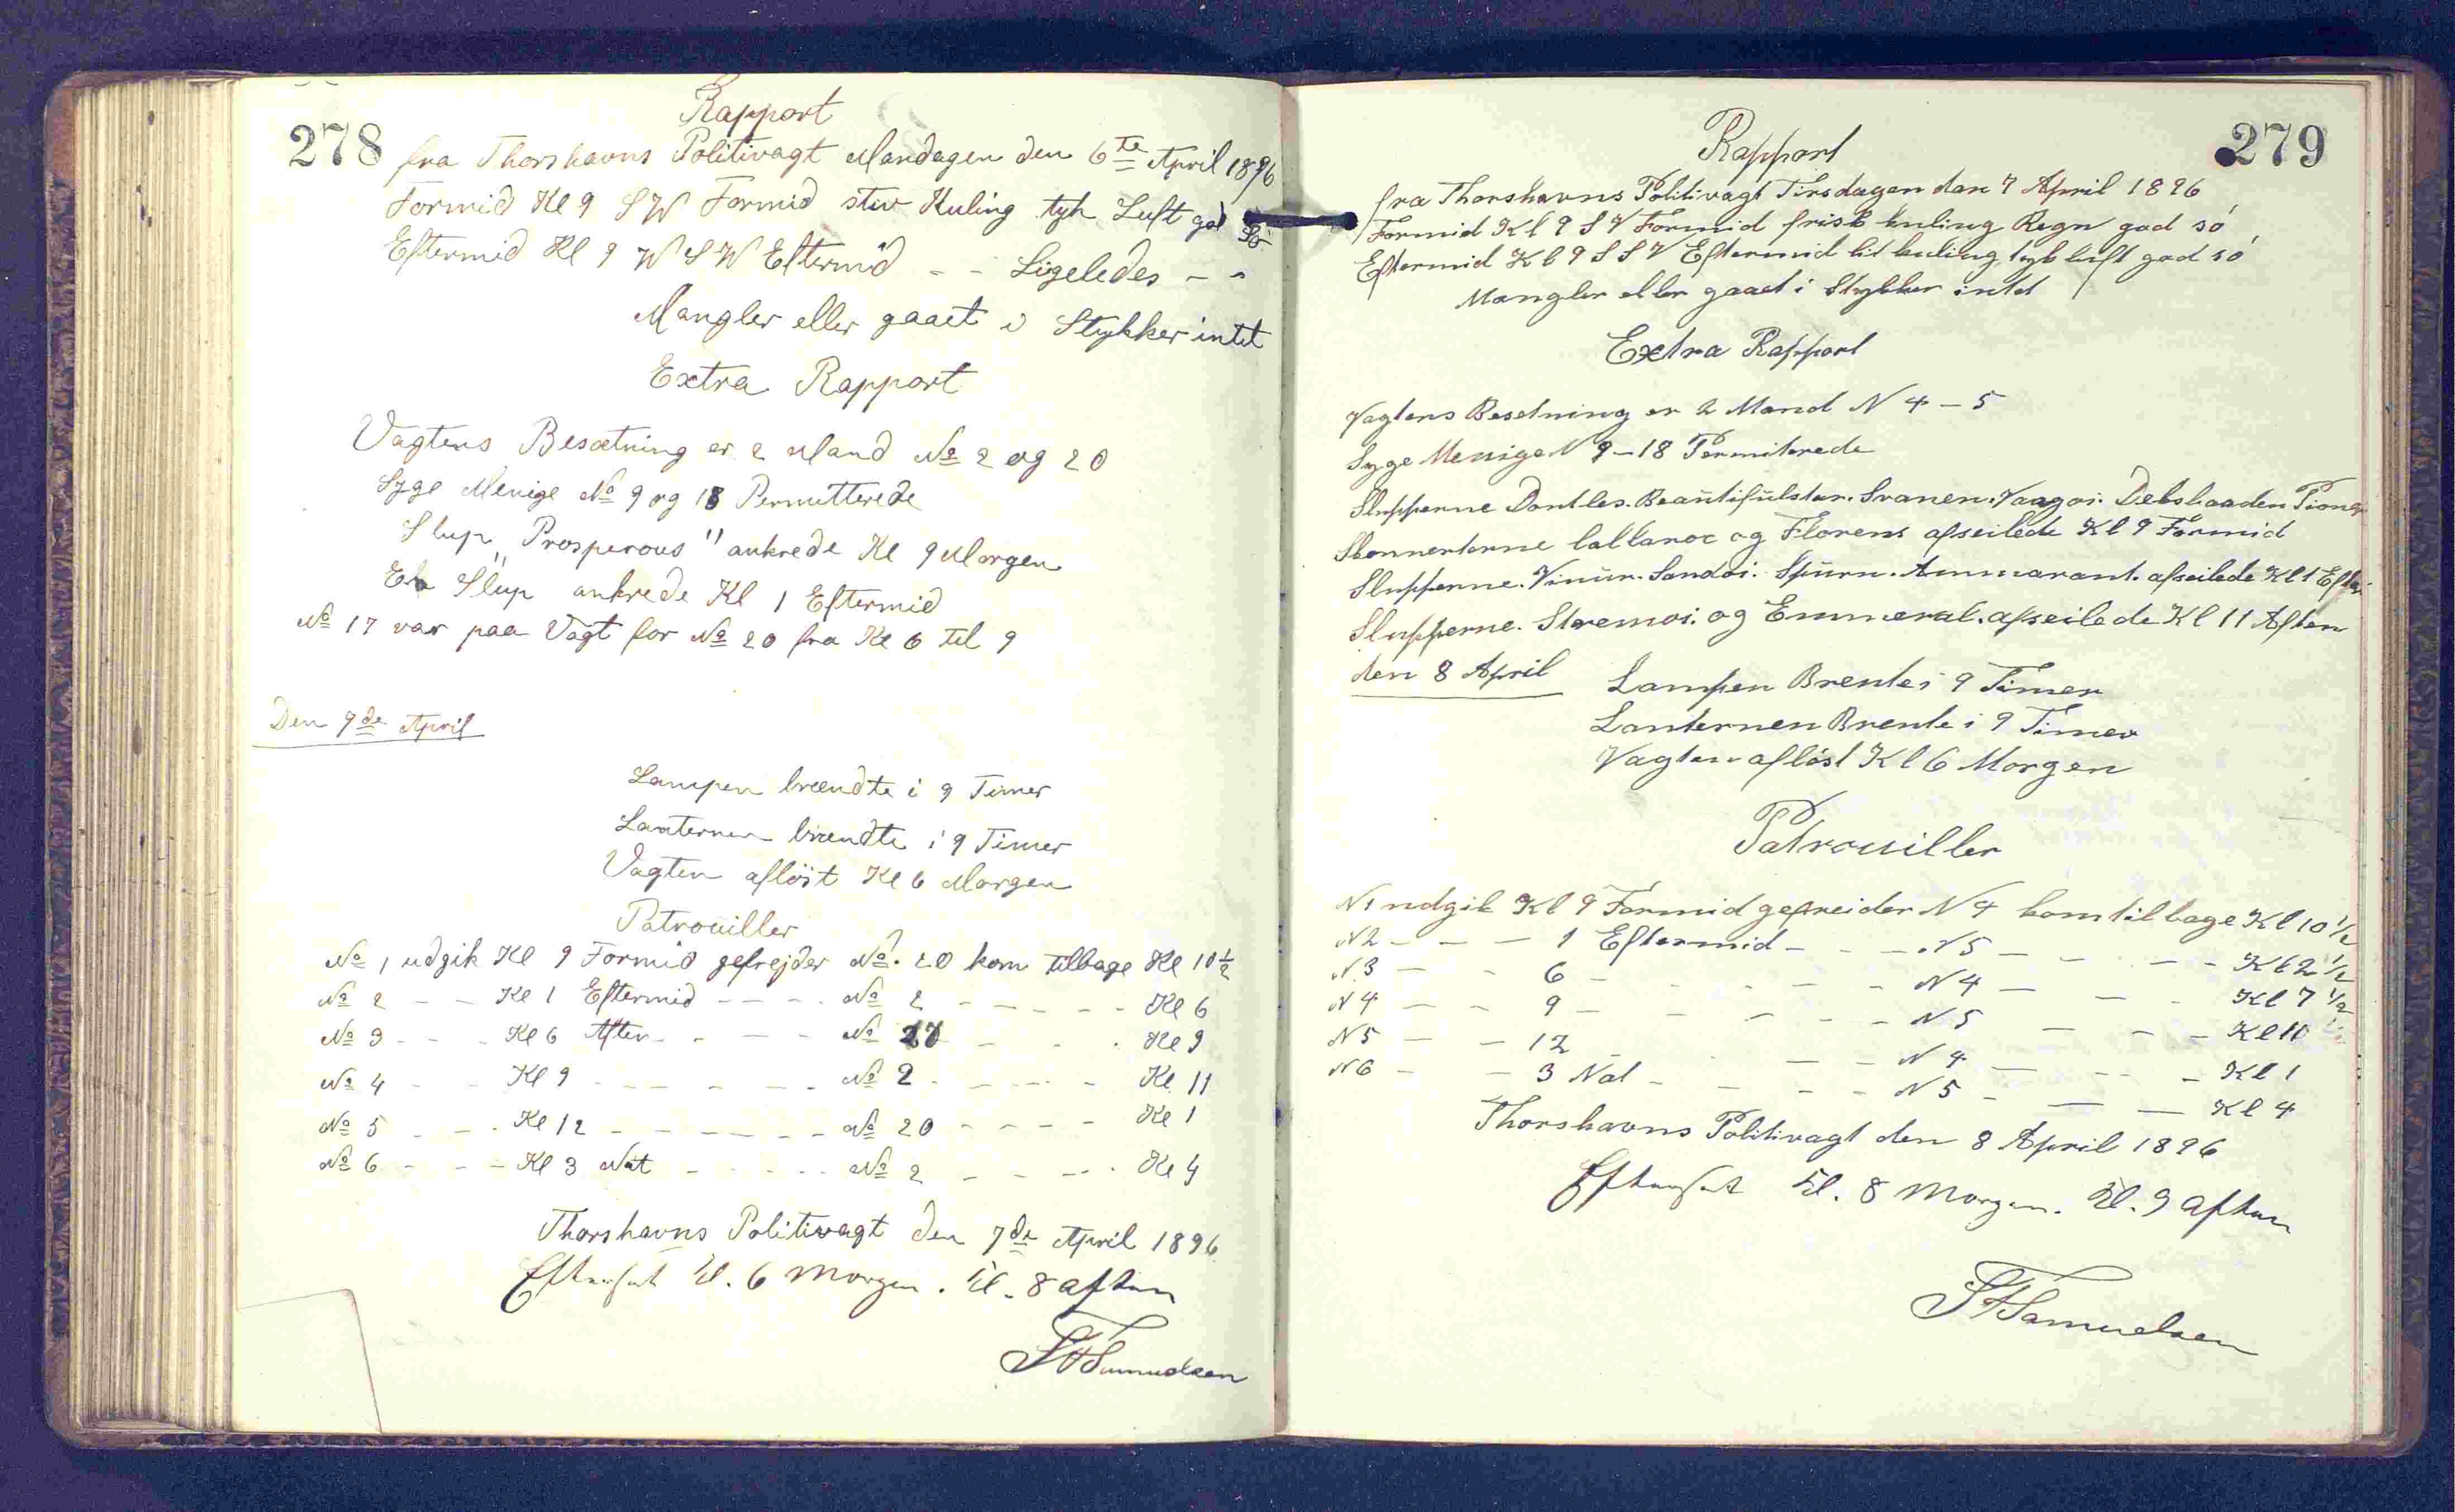 278
Rapport
fra Thorshavns Politivagt Mandagen den 6te April 1896
Formid Kl 9 SW Formid stiv Kuling tyk Luft god Sö
Eftermid Kl 9 WSW Eftermid - - Ligeledes - -
Mangler eller gaaet i Stykker intet
Extra Rapport
Vagtens Besætning er 2 Mand No 2 og 20
Syge Menige No 9 og 18 Permitterede
Slup "Prosperous" ankrede Kl 9 Morgen
Slup ankrede Kl 1 Eftermid
No 17 var paa Vagt for No 20 fra Kl 6 til 9
Den 7de April
Lampen brændte i 9 Timer
Lanternen brændte i 9 Timer
Vagten aflöst Kl 6 Morgen
Patrouiller
No 1 udgik Kl 9 Formid gefrejder No. 20 kom tilbage Kl 10 1/2
No 2 - - Kl 1 Eftermid - - - - No 2 - - - - - Kl 6
No 3 - - - Kl 6 Aften - - - - No 17 - - - Kl 9
No 4 - - Kl 9 - - - - - - No 2 - - - - - Kl 11
No 5 - - - Kl 12 - - - - - - No 20 - - - - Kl 1
No 6 - - - Kl 3 Nat - - - - - No 2 - - - - Kl 4
Thorshavns Politivagt den 7de April 1896
Efterseet Kl. 6 Morgen. Kl. 8 aften
SFSamuelsen
279
Rapport
fra Thorshavns Politivagt Tirsdagen den 7 April 1896
Formid Kl 9 SV Formid frisk kuling Regn god sö
Eftermid Kl 9 SSV Eftermid lit kuling tyk luft god sö
Mangler eller gaaet i Stykker intet
Extra Rapport
Vagtens Besetning er 2 Mand N 4 - 5
Syge Menige N 9 - 18 Permiterede
Slupperne Dontles. Beautifulstar. Svanen. Vaagoi. Debshaaden Pioner
Skonnerterne Callaroc og Florens afseilede Kl 9 Formid
Slupperne. Vinur. Sandoi. Spurn. Ammarant. afseilede Kl 1 Efter
Slupperne. Stremoi. og Emmeral. afseilede Kl 11 Aften
den 8 April
Lampen Brente i 9 Timer
Lanternen Brente i 9 Timer
Vagten aflöst Kl 6 Morgen
Patrouiller
N 1 udgik Kl 9 Formid gefreider N 4 kom tilbage Kl 10 1/2
N 2 - - - 1 Eftermid - - - N 5 - - - - Kl 2 1/2
N. 3 - - 6 - - - - N 4 - - - Kl 7 1/2
N 4 - - 9 - - - - - N 5 - - - Kl 11
N 5 - - 12 - - - N 4 - - - - Kl 1
N 6 - - 3 Nat - - - - N 5 - - - Kl 4
Thorshavns Politivagt den 8 April 1896
Efterseet Kl. 8 Morgen. Kl. 9 aften
SFSamuelsen